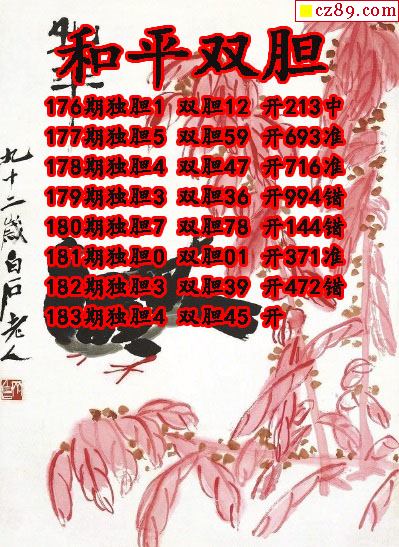 cz89.com
和平双胆
176期独胆1 双胆12 开213中
177期独胆5 双胆59 开693准
178期独胆4 双胆47 开716准
179期独胆3 双胆36 开994错
180期独胆7 双胆78 开144错
181期独胆0 双胆01 开371准
182期独胆3 双胆39 开472错
183期独胆4 双胆45 开
九十二岁白石老人